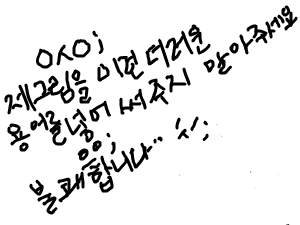 ㅇㅅㅇ;
제그림을 이런 더러운
용어를 넣어 써주지 말아주세요
ㅇㅇ;
불쾌합니다..